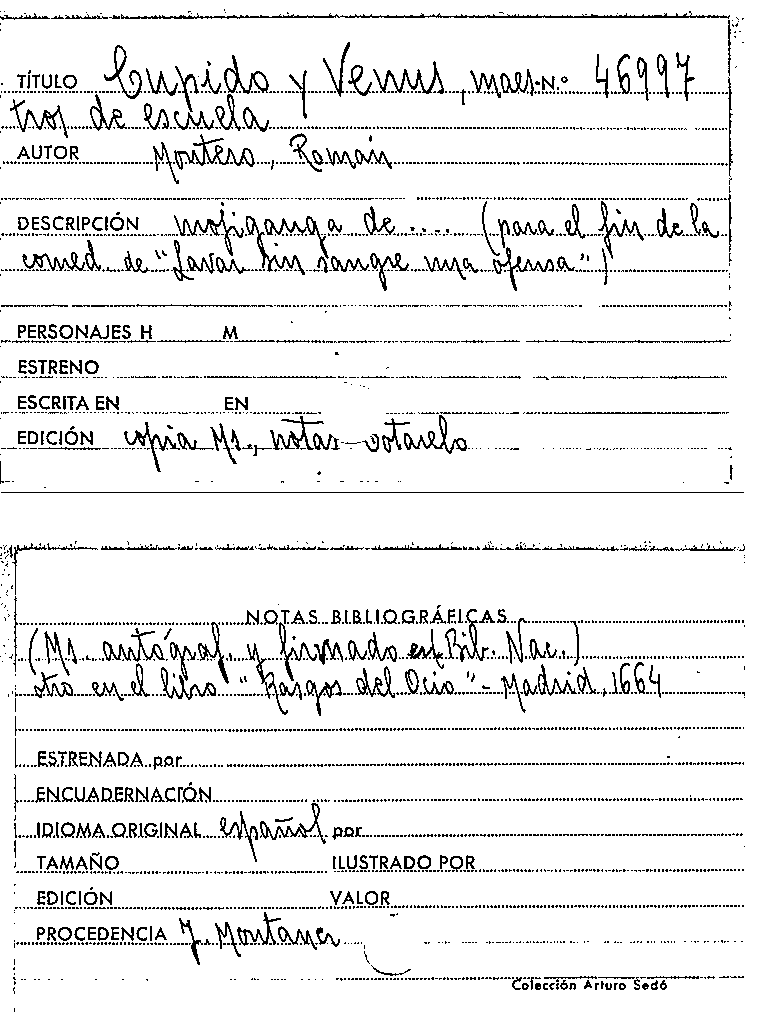 TÍTULO Cupido y Venus, maes- N.º 46997
tros de escuela
AUTOR Montero, Román
DESCRIPCIÓN mojiganga de .... (para el fin de la
comed. de "Lavar sin sangre una ofensa")
PERSONAJES H M
ESTRENO
ESCRITA EN EN
EDICIÓN copia Ms., notas cotarelo
NOTAS BIBLIOGRÁFICAS
(Ms. autógraf. y firmado en Bib. Nac.)
otro en el libro "Rasgos del Ocio" - Madrid, 1664
ESTRENADA por
ENCUADERNACIÓN
IDIOMA ORIGINAL español por
TAMAÑO ILUSTRADO POR
EDICIÓN VALOR
PROCEDENCIA J. Montaner
Colección Arturo Sedó